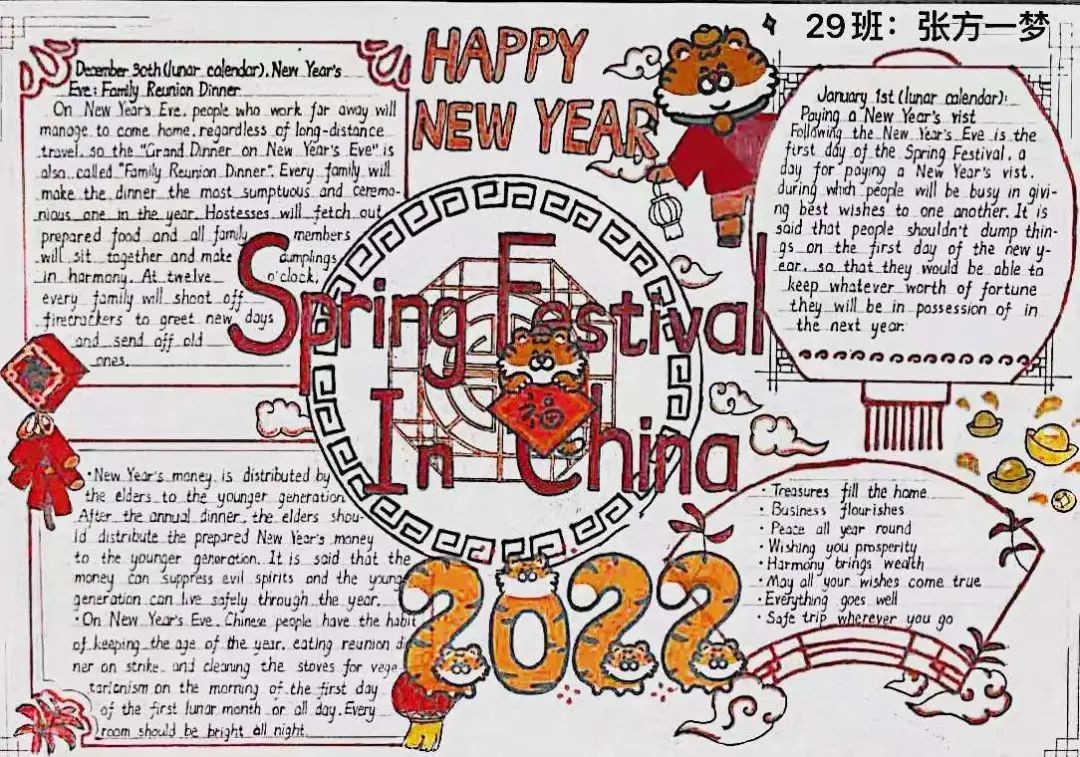 29班：张方一梦
HAPPY
NEW YEAR
December 30th (lunar calendar), New Year's
Eve: Family Reunion Dinner
On New Year's Eve, people who work far away will
manage to come home, regardless of long-distance
travel, so the "Grand Dinner on New Year's Eve" is
also called "Family Reunion Dinner". Every family will
make the dinner the most sumptuous and ceremo-
nious one in the year. Hostesses will fetch out
prepared food and all family members
will sit together and make dumplings
in harmony. At twelve o'clock,
every family will shoot off
firecrackers to greet new days
and send off old
ones.
January 1st (lunar calendar):
Paying a New Year's vist
Following the New Year's Eve is the
first day of the Spring Festival, a
day for paying a New Year's vist,
during which people will be busy in givi-
ng best wishes to one another. It is
said that people shouldn't dump thin-
gs on the first day of the new y-
ear, so that they would be able to
keep whatever worth of fortune
they will be in possession of in
the next year.
Spring Festival
In China
福
·New Year's money is distributed by
the elders to the younger generation
After the annual dinner, the elders shou-
ld distribute the prepared New Year's money
to the younger generation. It is said that the
money can suppress evil spirits and the young
generation can live safely through the year.
·On New Year's Eve, Chinese people have the habit
of keeping the age of the year, eating reunion di
ner on strike, and cleaning the stoves for vege
tarianism on the morning of the first day
of the first lunar month or all day. Every
room should be bright all night.
2022
·Treasures fill the home
·Business flourishes
·Peace all year round
·Wishing you prosperity
·Harmony brings wealth
·May all your wishes come true
·Everything goes well
·Safe trip wherever you go